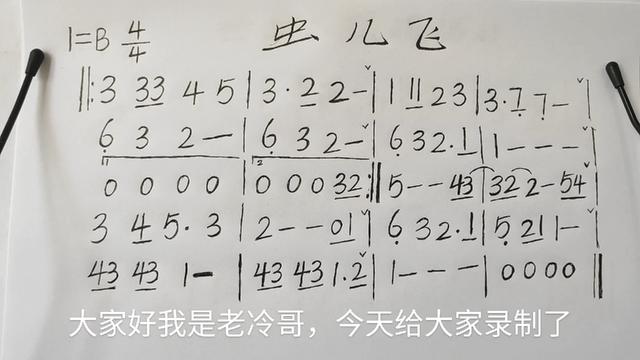 1=B 4/4 虫儿飞
‖:3 33 4 5 | 3·2 2- | 1 11 2 3 | 3·7 7- |
6 3 2- | 6 3 2- | 6 3 2·1 | 1 - - - |
1 2
0 0 0 0 | 0 0 0 32 :‖ 5 - - 43 | 32 2 - 54 |
3 4 5·3 | 2 - - 01 | 6 3 2·1 | 5 21 1- |
43 43 1- | 43 43 1·2 | 1 - - - | 0 0 0 0 ‖
大家好我是老冷哥，今天给大家录制了